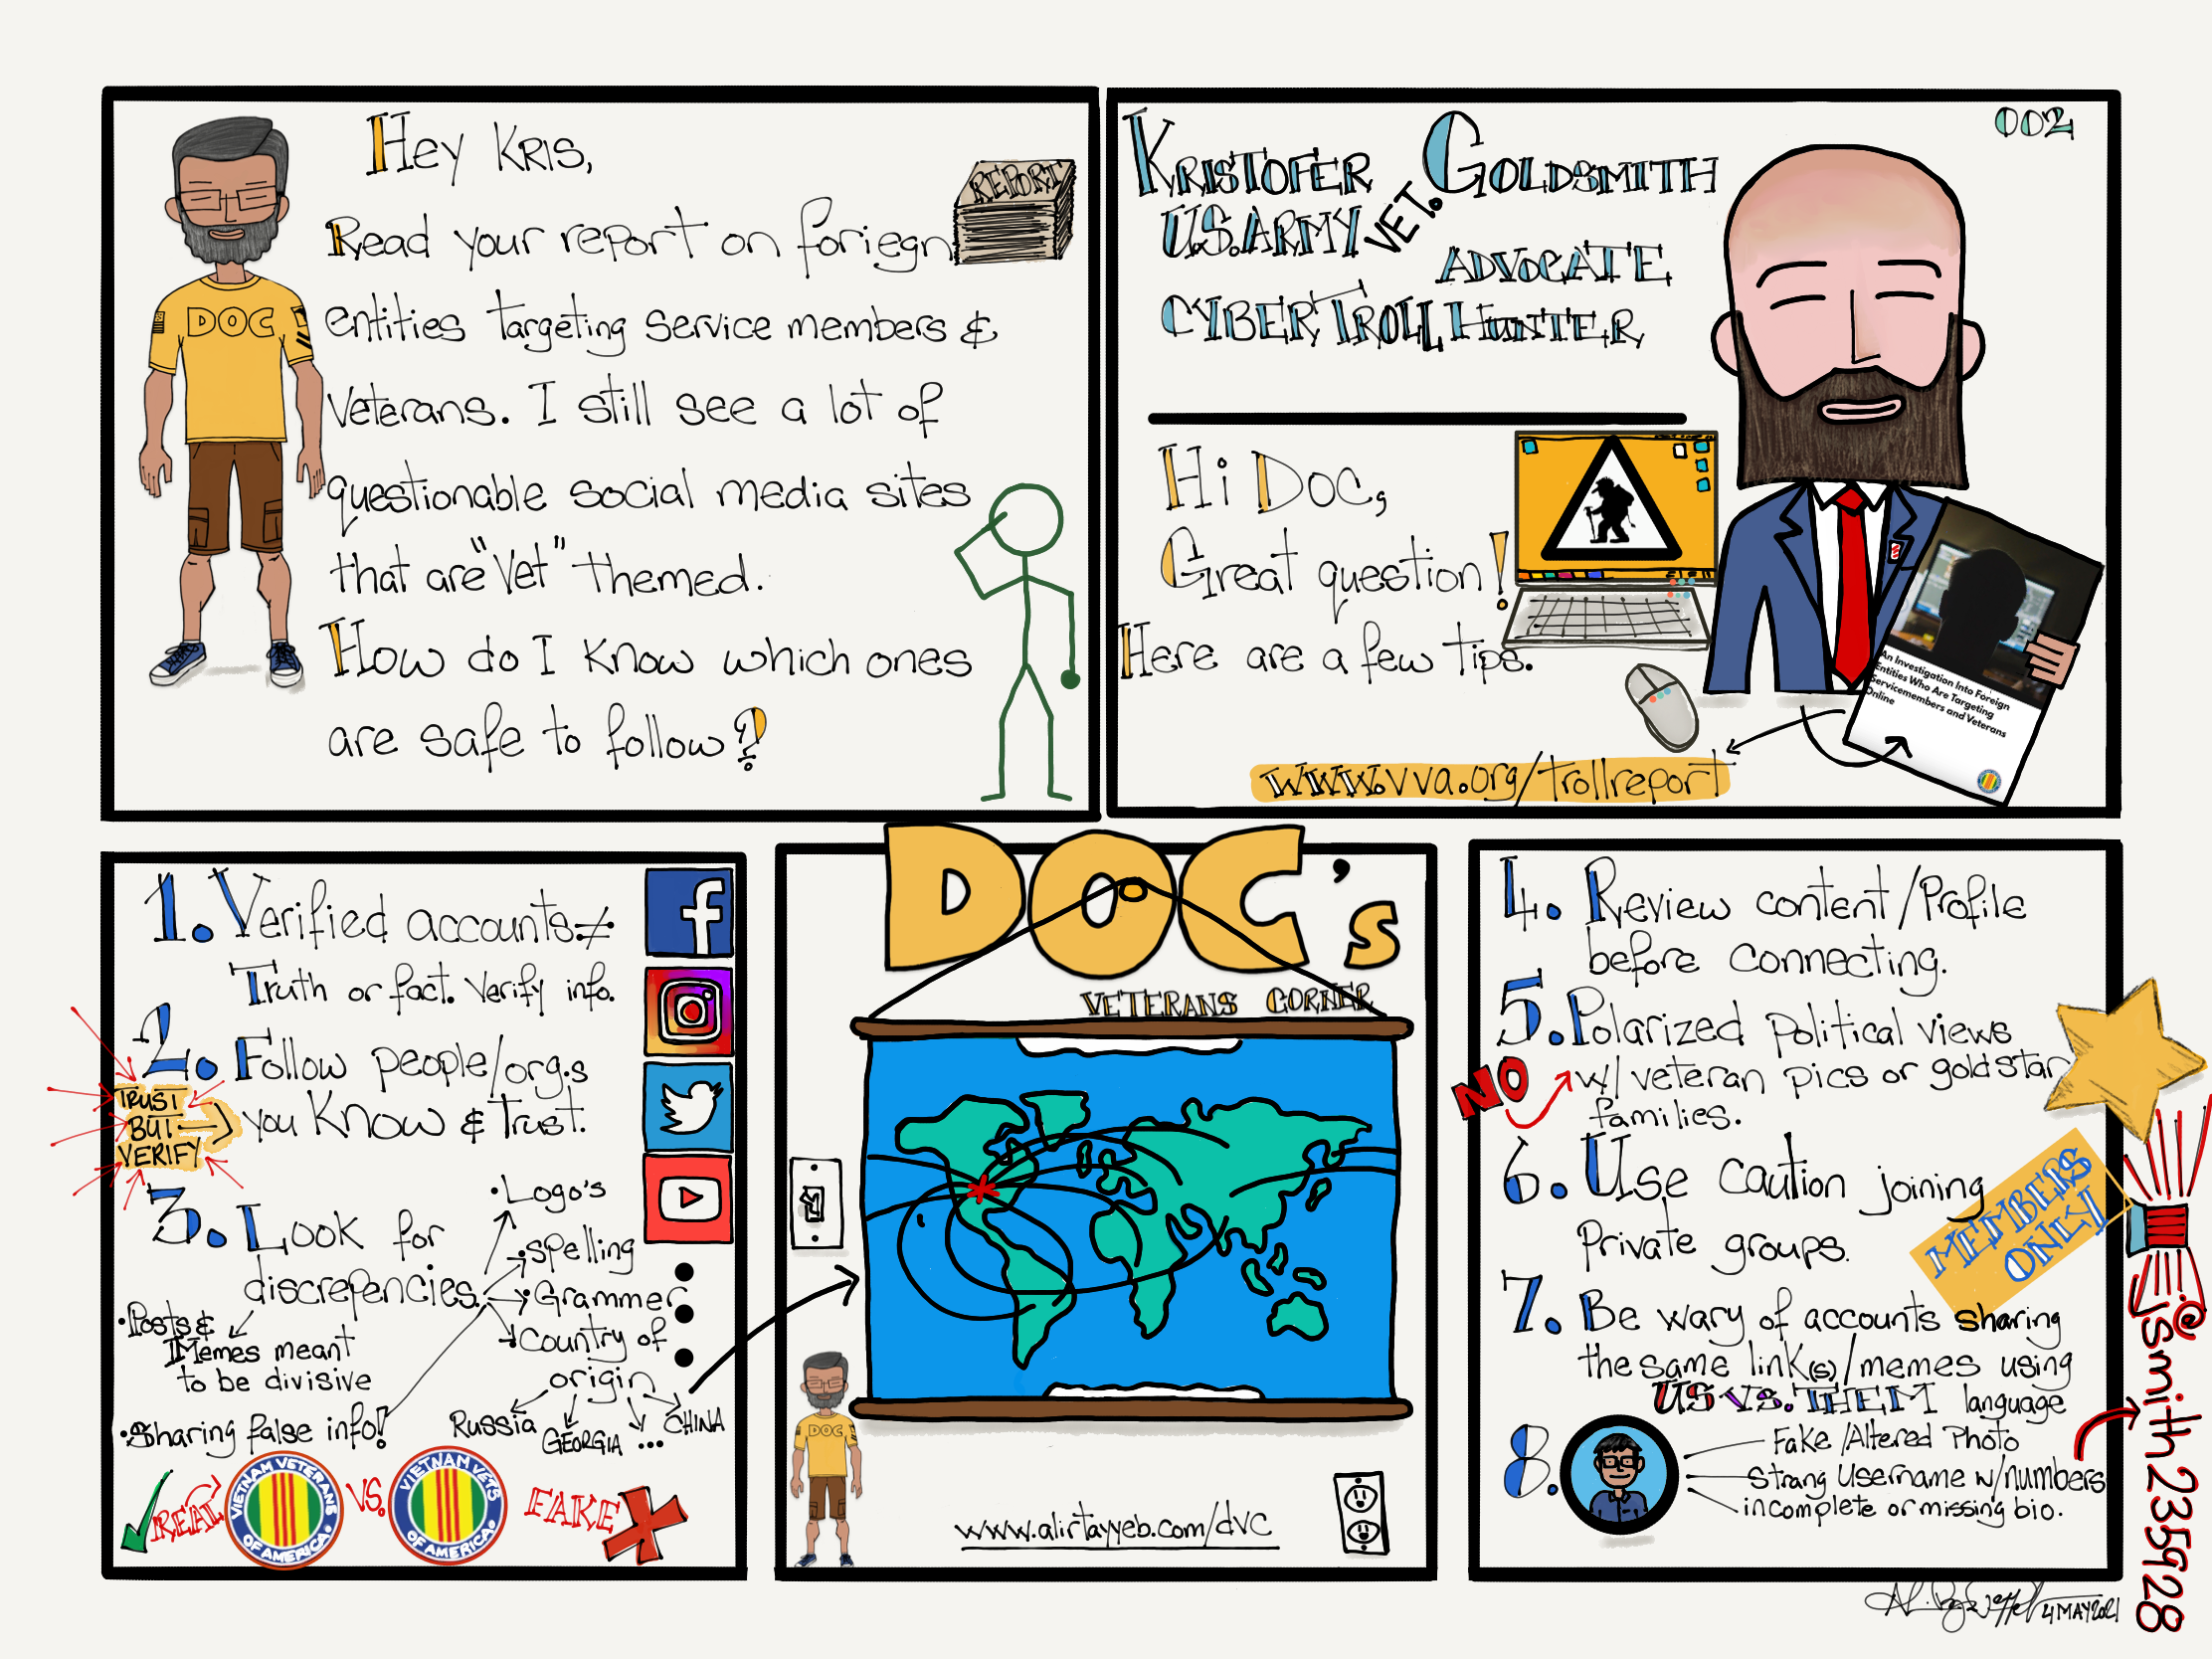 Hey Kris,
Read your report on foriegn
REPORT
entities targeting service members &
veterans. I still see a lot of
questionable social media sites
that are "Vet" themed.
How do I know which ones
are safe to follow?
DOC
002
KRISTOFER GOLDSMITH
U.S. ARMY VET.
ADVOCATE
CYBER TROLL HUNTER
Hi Doc,
Great question!
Here are a few tips.
An Investigation Into Foreign
Entities Who Are Targeting
Servicemembers and Veterans
Online
www.vva.org/trollreport
1. Verified accounts ≠
Truth or fact. Verify info.
2. Follow people/org.s
you Know & Trust.
TRUST
BUT
VERIFY
3. Look for
discrepencies
• Logo's
• Spelling
• Grammer
• Country of
origin
Russia
GEORGIA
...
CHINA
• Posts &
Memes meant
to be divisive
• Sharing false info!
REAL
VIETNAM VETERANS
OF AMERICA.
VS.
VIETNAM VETS
OF AMERICA.
FAKE
DOC's
VETERANS CORNER
DOC
www.alirtayyeb.com/dvc
4. Review content/Profile
before connecting.
5. Polarized Political views
w/ veteran pics or gold star
families.
NO
6. Use caution joining
Private groups.
MEMBERS
ONLY
7. Be wary of accounts sharing
the same link(s)/memes using
US VS. THEM language
8.
Fake/Altered Photo
Strang Username w/numbers
incomplete or missing bio.
@jsmith235928
4MAY2021